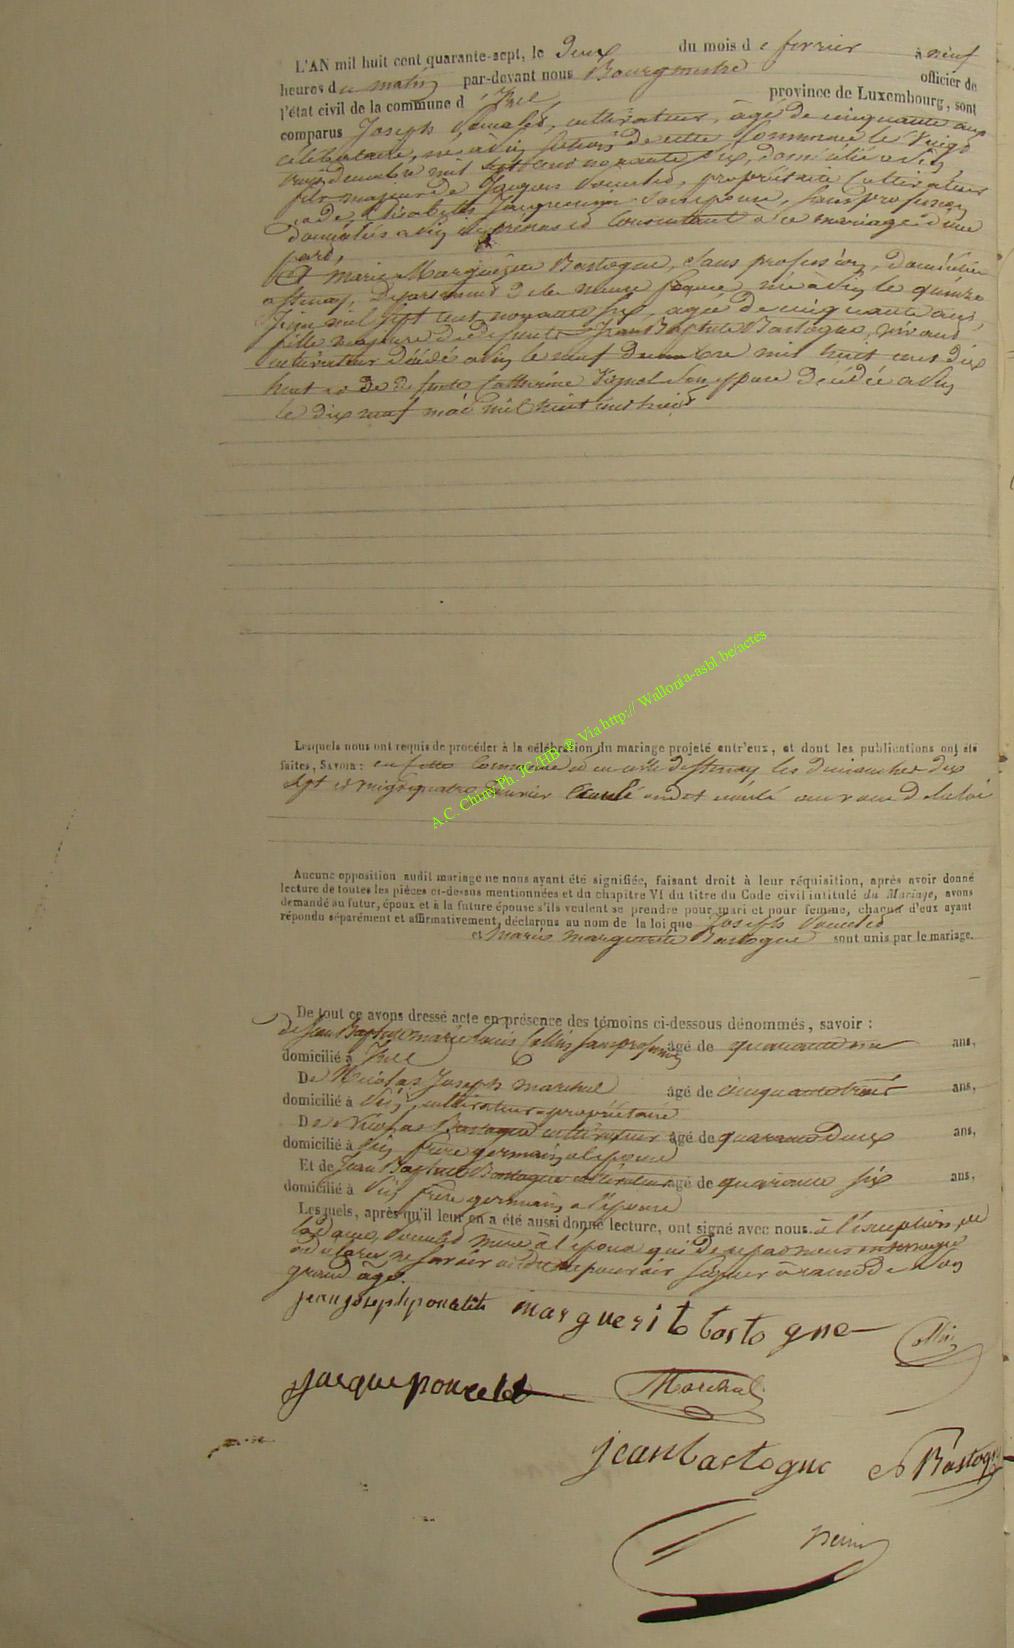 L'AN mil huit cent quarante-sept, le deux du mois de fevrier à neuf
heures du matin par-devant nous Bourgmestre officier de
l'état civil de la commune d'Izel province de Luxembourg, sont
comparus Joseph Poncelet, cultivateur, âgé de cinquante ans
célibataire, né à de cette Commune le vingt
trois mil sept cent nonante six, domicilié à
fils majeur de Jacques Poncelet, propriétaire Cultivateur
et de Elisabeth Jacquemin son épouse, sans profession
domiciliés à présens et Consentant à ce mariage d'une
part,
Et Marie Marguerite Bastogne, sans profession, domiciliée
à Stenay, Département de la meuse france, née à le quinze
Juin mil sept cent nonante six, agée de cinquante ans,
fille majeure de défunt Jean Baptiste Bastogne, vivant
cultivateur décédé à le neuf mil huit cent dix
huit et de défunte Catherine son épouse Décédée à
le dix neuf mai mil huit cent
Lesquels nous ont requis de procéder à la célébration du mariage projeté entr'eux, et dont les publications ont été
faites, Savoir : en cette Commune et en celle de Stenay les dimanches dix
sept et vingt quatre Janvier au vœu de la loi
Aucune opposition audit mariage ne nous ayant été signifiée, faisant droit à leur réquisition, après avoir donné
lecture de toutes les pièces ci-dessus mentionnées et du chapitre VI du titre du Code civil intitulé du Mariage, avons
demandé au futur, époux et à la future épouse s'ils veulent se prendre pour mari et pour femme, chacun d'eux ayant
répondu séparément et affirmativement, déclarons au nom de la loi que Joseph Poncelet
et Marie Marguerite Bastogne sont unis par le mariage.
De tout ce avons dressé acte en présence des témoins ci-dessous dénommés, savoir :
de Jean Baptiste Marie Louis Collin sans profession âgé de quarante ans,
domicilié à Izel
De Nicolas Joseph Marchal âgé de cinquante trois ans,
domicilié à cultivateur propriétaire
De Nicolas Bastogne cultivateur âgé de quarante deux ans,
domicilié à frère germain à l'épouse
Et de Jean Baptiste Bastogne cultivateur âgé de quarante six ans,
domicilié à frère germain à l'épouse
Lesquels, après qu'il leur en a été aussi donné lecture, ont signé avec nous à l'exception de
la dame Poncelet mère à l'époux qui de
déclaré ne savoir pouvoir signer à cause de son
grand âge.
jean joseph poncelet marguerit bastogne Collin
jacque poncelet Marchal
jean bastogne Bastogne
A.C. Chiny Ph. JC/HB @ Via http:// Wallonia-asbl.be/actes